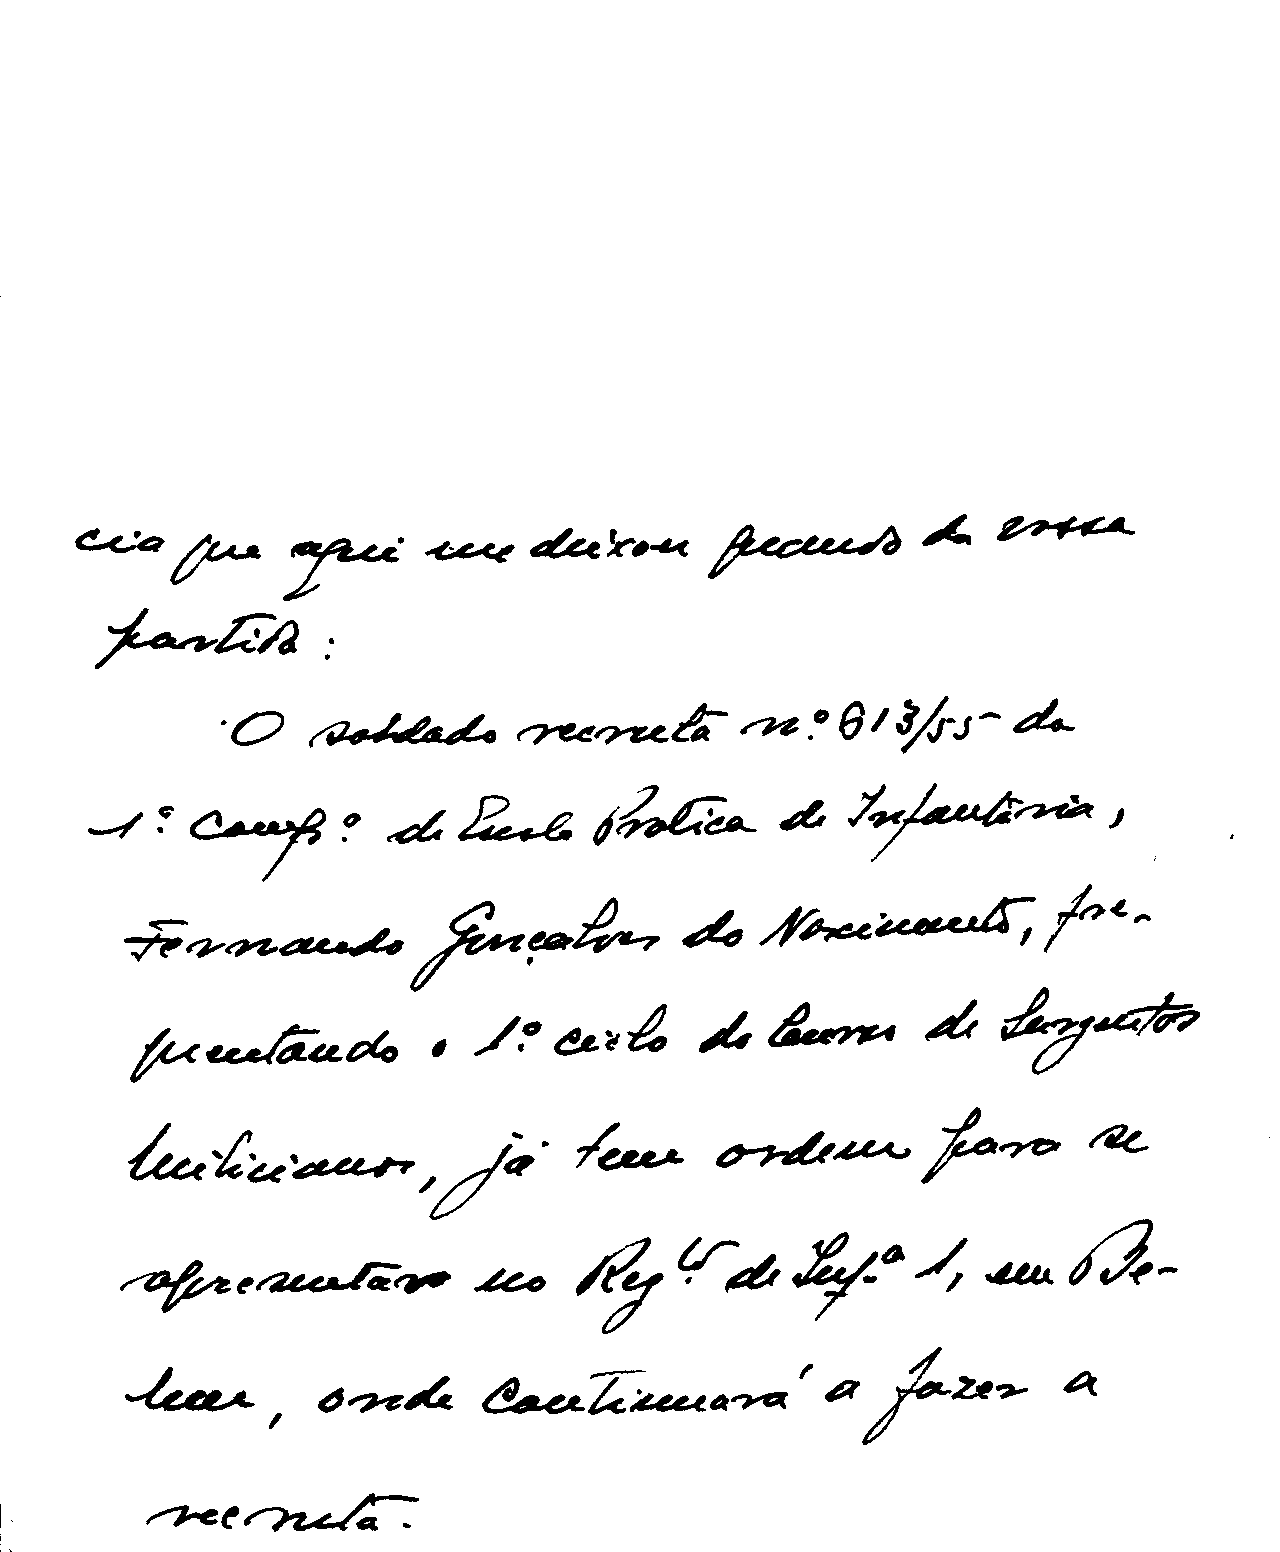 cia que aqui me deixou quando da vossa
partida:
O soldado recruta n.º 613/55 da
1.ª Comp.ª de Escola Pratica de Infantaria,
Fernando Gonçalves do Nascimento, fre-
quentando o 1.º ciclo do Curso de Sargentos
Milicianos, já tem ordem para se
apresentar no Reg.to de Inf.a 1, em Be-
lem, onde continuará a fazer a
recruta.